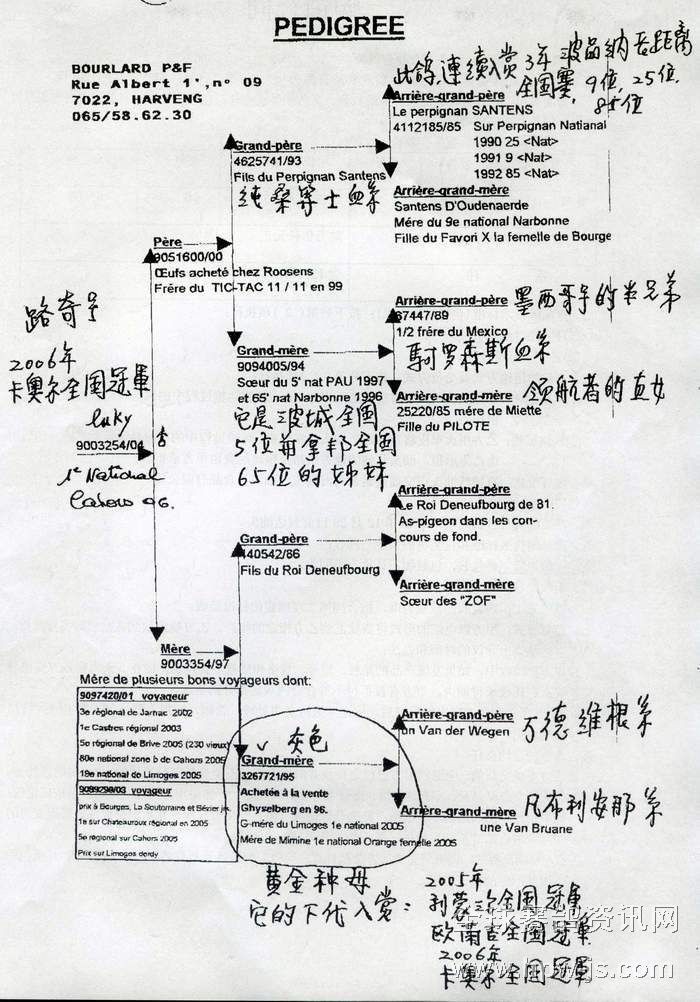 PEDIGREE
BOURLARD P&F
Rue Albert 1', n° 09
7022, HARVENG
065/58.62.30
此鸽,連续入赏3年波品纳长距离
全国赛,9位,25位,
85位
Arrière-grand-père
Le perpignan SANTENS
4112185/85 Sur Perpignan National
1990 25 <Nat>
1991 9 <Nat>
1992 85 <Nat>
Grand-père
4625741/93
Fils du Perpignan Santens
純桑等士血系
Arrière-grand-mère
Santens D'Oudenaerde
Mére du 9e national Narbonne
Fille du Favori X la femelle de Bourge
Père
9051600/00
Œufs acheté chez Roosens
Frére du TIC-TAC 11 / 11 en 99
Arrière-grand-père
67447/89
1/2 frére du Mexico
墨西哥号的半兄弟
Grand-mère
9094005/94
Sœur du 5' nat PAU 1997
et 65' nat Narbonne 1996
它是波城全国
5位前拿邦全国
65位的姊妹
馬可罗森斯血系
Arrière-grand-père
25220/85 mére de Miette
Fille du PILOTE
领航者的直女
路奇号
2006年
卡奥尔全国冠軍
luky
9003254/04
1e National
Cahors 06.
Arrière-grand-père
Le Roi Deneufbourg de 81.
As-pigeon dans les con-
cours de fond.
Grand-père
140542/86
Fils du Roi Deneufbourg
Arrière-grand-mère
Sœur des "ZOF"
Mère
9003354/97
Mére de plusieurs bons voyageurs dont:
9097420/01 voyageur
3e régional de Jarnac 2002
1e Castres régional 2003
5e régional de Brive 2005 (230 vieux)
80e national zone b de Cahors 2005
19e national de Limoges 2005
9089298/03 voyageur
prix à Bourges, La Souterraine et Bézier
1e sur Chateauroux régional en 2005
5e regional sur Cahors 2005
Prix sur Limoges derdy
灰色
Grand-mère
3267721/95
Achetée à la vente
Ghyselberg en 96.
G-mére du Limoges 1e national 2005
Mére de Mimine 1e national Orange femelle 2005
Arrière-grand-père
un Van der Wegen
万德維根系
Arrière-grand-mère
une Van Bruane
凡布利安那系
黄金种母
它的下代入赏:
2005年
利蒙三尔全国冠軍
欧蘭吉全国冠軍
2006年
卡奥尔全国冠軍
赛鸽资讯网